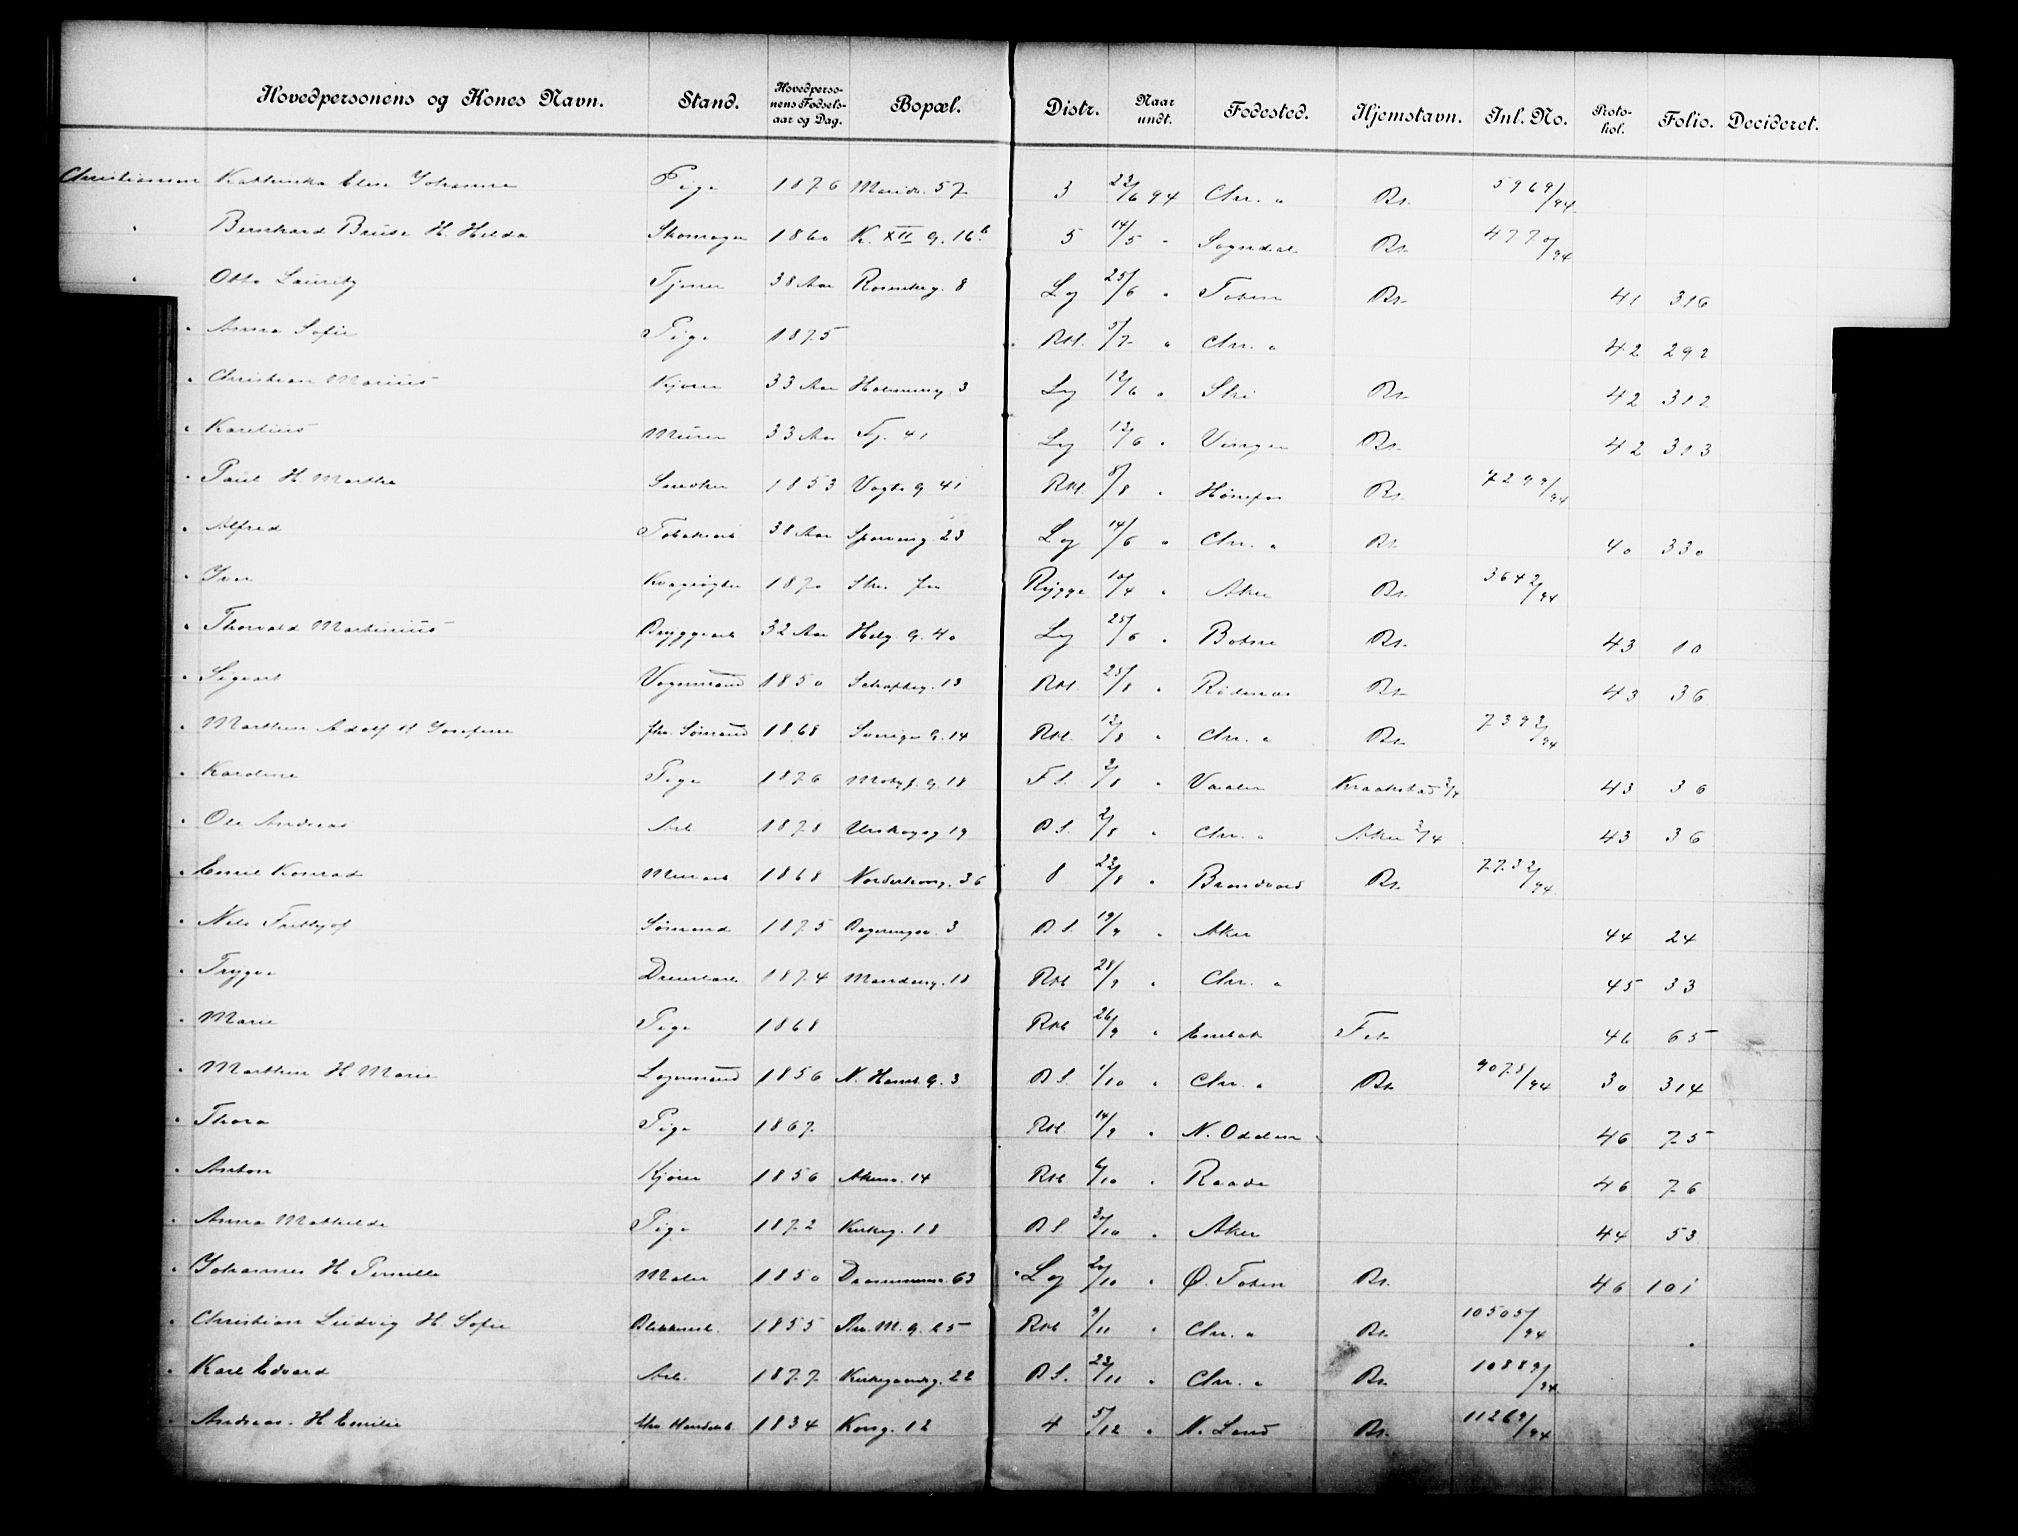 Hovedpersonens og Kones Navn. Stand. Hovedpersonens Fødselsaar og Dag. Bopæl. Distr. Naar undt. Fødested. Hjemstavn. Inl. No. Protokol. Folio. Decideret.
Christiansen Kathinka Elise Johanne Pige 1876 Marids. 57 3 23/6 94 Chr. a Bt. 5969/94
" Bernhard H. Hilda Skomager 1860 K. XII g. 16 b 5 14/5 " Sogndal Bt. 4770/94
" Otto Lauritz Tjener 38 Aar Rosenkrg. 8 Lg 25/6 " Toten Bt. 41 316
" Anna Sofie Pige 1875 Rst. 5/7 " Chr. a 42 292
" Christian Marius Kjører 33 Aar Holsmeng. 3 Lg 12/6 " Ski Bt. 42 312
" Karelius Murer 33 Aar Tg. 41 Lg 12/6 " Vinger Bt. 42 313
" Paul H. Martha Snedker 1853 Vogts g. 41 Rst. 8/8 " Hønefos Bt. 7299/94
" Alfred Tobaksarb 38 Aar Sporveisg. 23 Lg 14/6 " Chr. a Bt. 40 330
" Iver 1870 Rygge 10/4 " Aker Bt. 3642/94
" Thorvald Martinius Bryggearb 32 Aar Helg. g. 40 Lg 25/6 " Botne Bt. 43 10
" Sigvart Vognmand 1850 Schafteg. 13 Rst. 25/8 " Rødenes Bt. 43 36
" Marthin Adolf H. Josefine fhv. Sømand 1868 Sverigs g. 14 Rst. 12/8 " Chr. a Bt. 7392/94
" Karoline Pige 1876 Motzf. g. 18 F S. 2/8 " Vaaler Kraakstad 3/4 43 36
" Ole Andreas Arb 1878 Urskogsg 19 B S. 2/8 " Chr. a Aker 3/4 43 36
" Emil Konrad Murarb 1868 Nordstrøng. 36 8 22/8 " Brandvold Bt. 7732/94
" Nils Frithjof Sømand 1875 3 B S. 19/9 " Aker 44 24
" Trygve 1874 Mandalsg. 10 Rst 28/9 " Chr. a 45 33
" Marie Pige 1868 Rst 26/9 " Enebak Fet 46 65
" Marthin H Marie Lagermand 1856 N. Hamb. g. 3 B S. 1/10 " Chr. a Bt. 9078/94 30 314
" Thora Pige 1867 Rst. 14/9 " N. Odalen 46 75
" Anton Kjører 1856 Akersv. 14 Rst 6/10 " Raade 46 76
" Anna Mathilde Pige 1872 Kirkeg. 18 B S 30/10 " Aker 44 53
" Johannes H Pernille Maler 1850 Drammensv. 63 Lg 20/10 " Ø. Toten Bt. 46 101
" Christian Ludvig H Sofie Blikkensl. 1855 Thv. M. g. 25 Rst 9/11 " Chr. a Bt. 10505/94
" Karl Edvard Arb. 1877 Kirkegaardsg. 22 B S. 23/11 " Chr. a Bt. 10889/94
" Andreas H Emilie fhv. Handelsb 1834 Kong. 12 4 5/12 " N. Land Bt. 11269/94